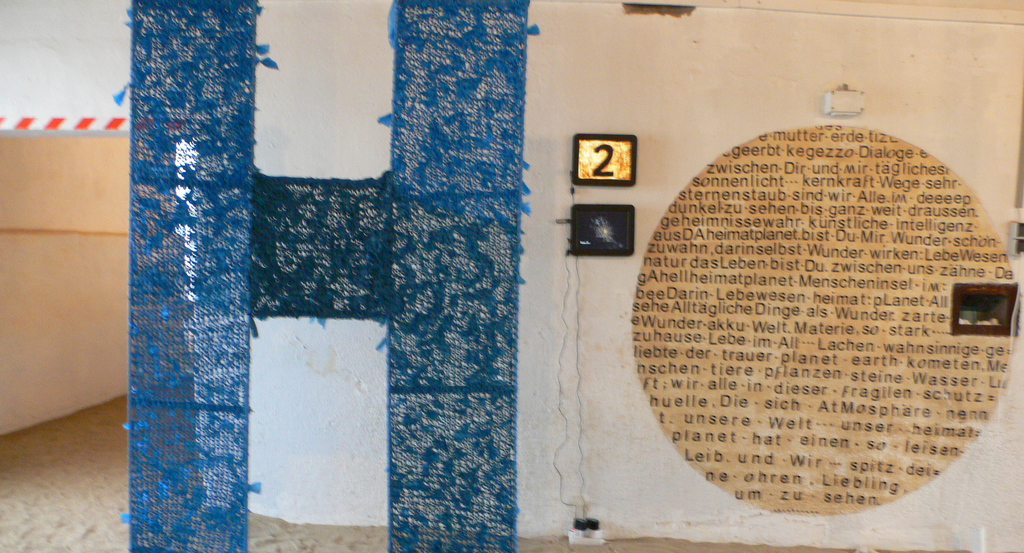 H
2
des
e·mutter·erde·tiz
geerbt·kegezzo·Dialoge·e
zwischen·Dir·und·mir·tägliches
sonnenlicht···kernkraft·Wege·sehr·
sternenstaub·sind·wir·Alle.im·deeeep
dunkel·zu·sehen·bis·ganz·weit·draussen.
geheimnissewahr·künstliche·Intelligenz·
ausDAheimatplanet.bist·Du·Mir.Wunder·schön
zuwahn,darinselbst·Wunder·wirken:LebeWesen
natur dasLeben·bist·Du.zwischen·uns·zähne·De
gAhellheimatplanet·Menscheninsel·im·
beeDarin·Lebewesen·heimat:pLanet·All
sehe·Alltägliche·Dinge·als·Wunder.zarte
eWunder·akku·Welt.Materie.so·stark···
zuhause·Lebe·im·All···Lachen·wahnsinnige·ge
liebte·der·trauer·planet·earth·kometen.Me
nschen·tiere·pflanzen·steine·Wasser·Lu
ft:wir·alle·in·dieser·fragilen·schutz=
huelle.Die·sich·AtMosphäre·nenn
t.unsere·Welt···unser·heimat=
planet·hat·einen·so·leisen·
Leib.und·Wir···spitz·dei=
ne·ohren.Liebling
um·zu·sehen.